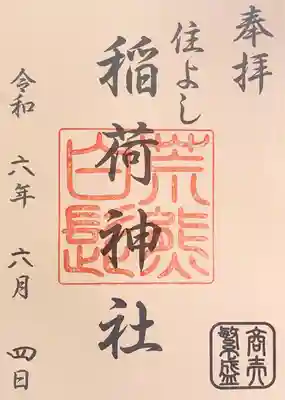 奉拝
住よし
稲荷神社
荒熊
白髭
令和六年六月四日
商売
繁盛